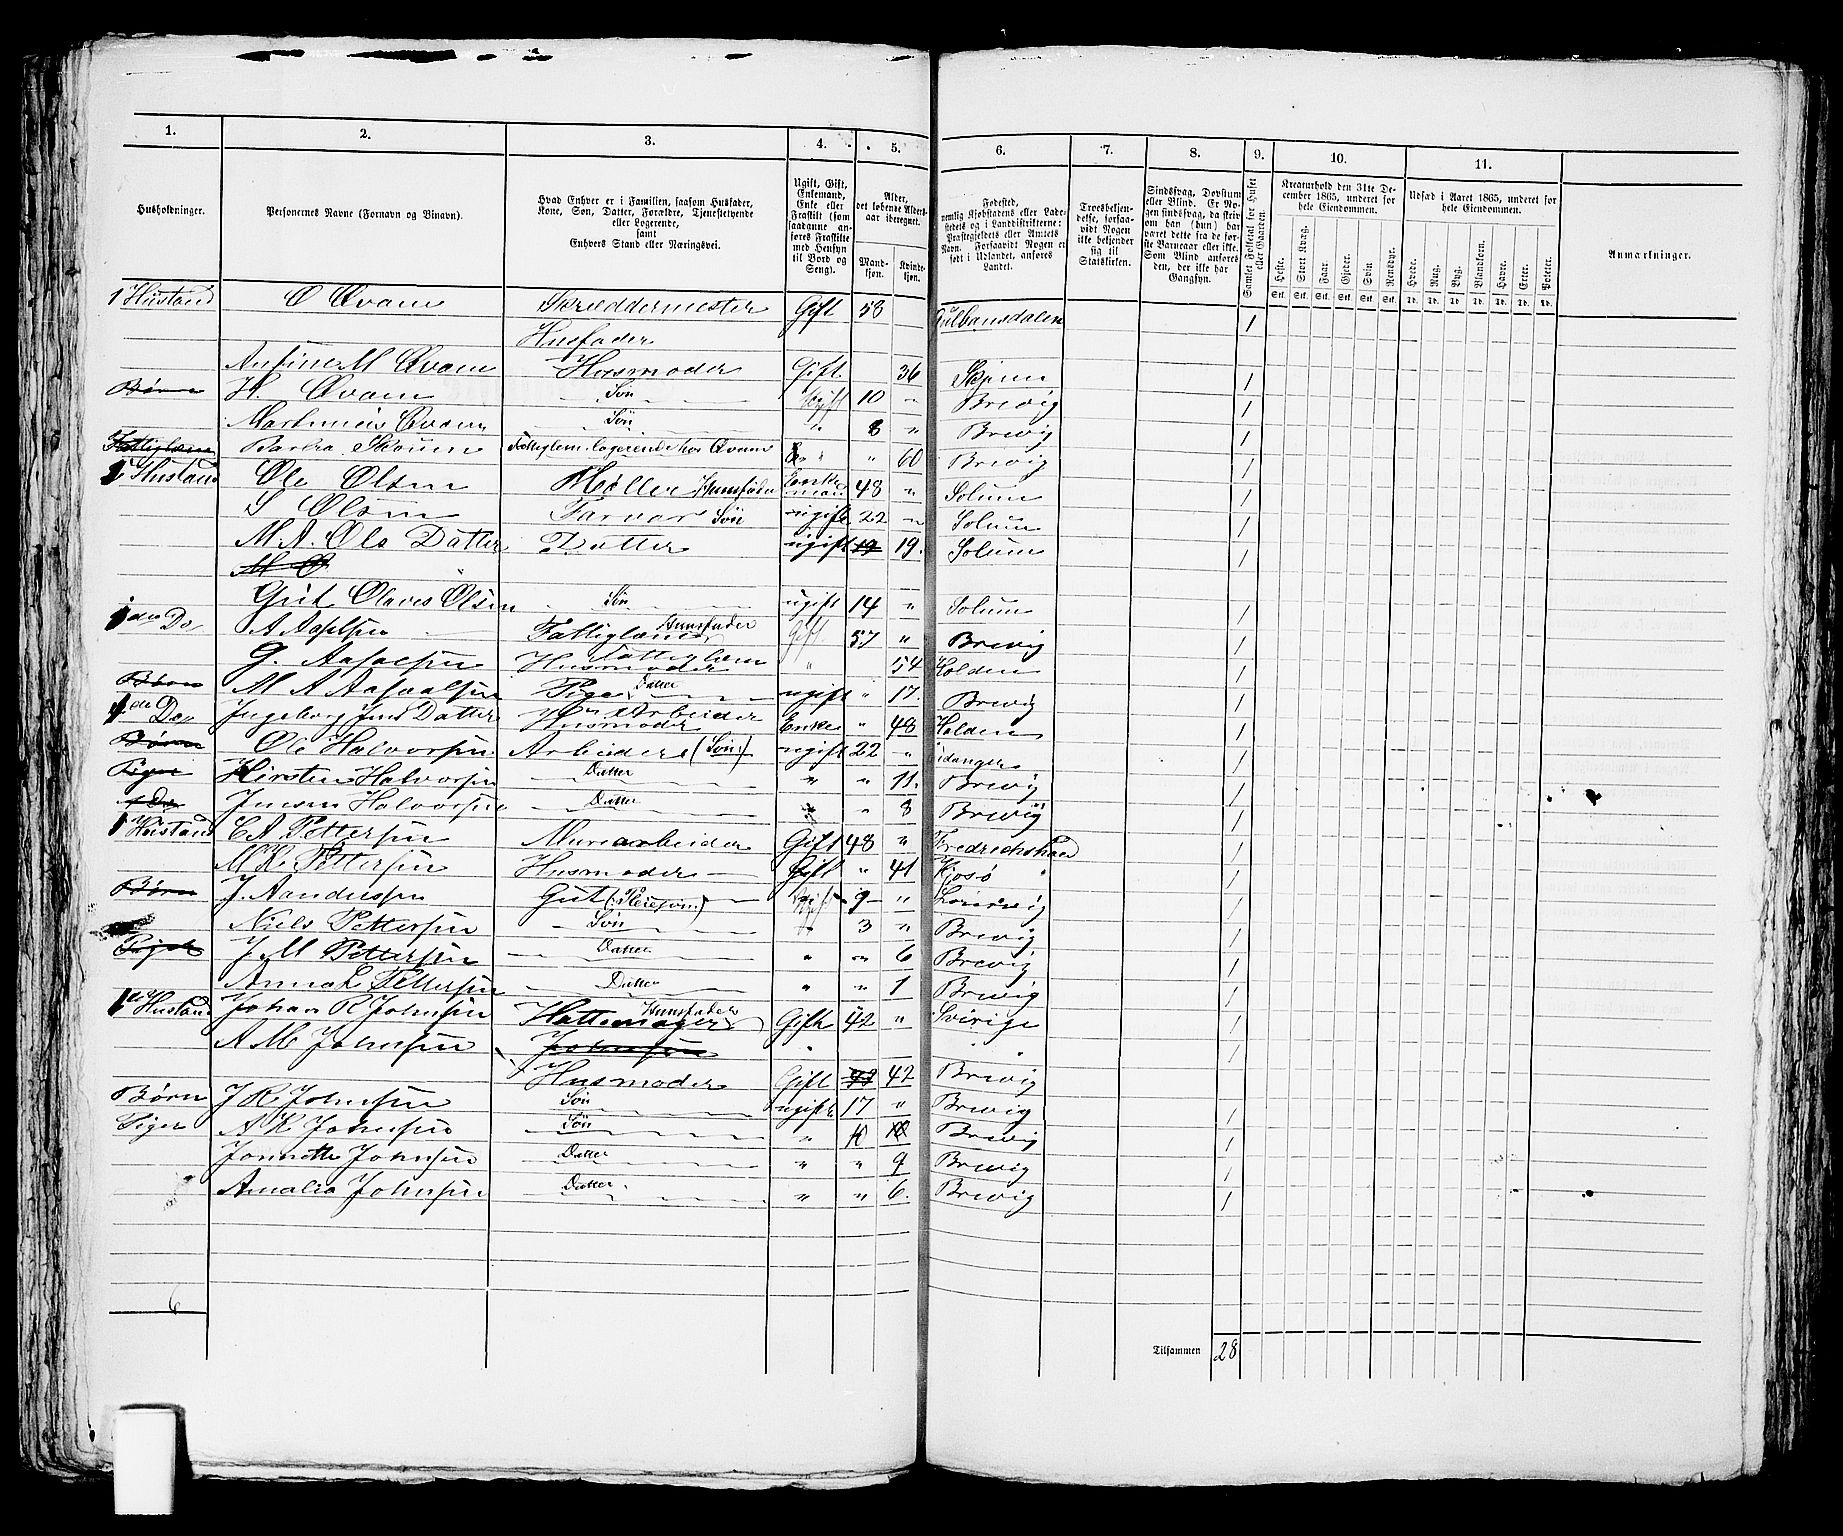 1. 2. 3. 4. 5. 6. 7. 8. 9. 10. 11.
Husholdninger.
Personernes Navne (Fornavn og Binavn).
Hvad Enhver er i Familien, saasom Husfader,
Kone, Søn, Datter, Forældre, Tjenestetyende
eller Logerende,
samt
Enhvers Stand eller Næringsvei.
Ugift, Gift,
Enkemand,
Enke eller
Fraskilt (som
saadanne an-
føres Fraskilte
med Hensyn
til Bord og
Seng).
Alder,
det løbende Alders-
aar iberegnet.
Mand-
kjøn.
Kvinde-
kjøn.
Fødested,
nemlig Kjøbstadens eller Lade-
stedets og i Landdistrikterne:
Præstegjeldets eller Amtets
Navn. Forsaavidt Nogen er
født i Udlandet, anføres
Landet.
Troesbekjen-
delse, forsaa-
vidt Nogen
ikke bekjender
sig til
Statskirken.
Sindssvag, Døvstum
eller Blind. Er No-
gen sindssvag, da skriv
om han (hun) har
været dette fra de før-
ste Barneaar eller ikke.
Som Blind anføres
den, der ikke har
Gangsyn.
Samlet Folketal for Huset
eller Gaarden.
Kreaturhold den 31te De-
cember 1865, underet for
hele Eiendommen.
Heste. Stort Kvæg. Faar. Gjeder. Svin. Rensdyr.
Stk. Stk. Stk. Stk. Stk. Stk.
Udsæd i Aaret 1865, underet for
hele Eiendommen.
Hvede. Rug. Byg. Blandkorn. Havre. Erter. Poteter.
Td. Td. Td. Td. Td. Td. Td.
Anmærkninger.
1 Hustand O Qvam Skræddermester Gift 58 1
Husfader
M Qvam Husmoder Gift 36 1
Børn H. Qvam Søn Ugift 10 " Brevig 1
Søn " 8 " Brevig 1
Fattiglem logerende hos Qvam " 60 Brevig 1
1 Hustand Ole Olsen Møller Huusfader Enkemand 48 " Solum 1
S Olsen Søn ugift 22 " Solum 1
M. A. Ols Datter Datter ugift 19 19. Solum 1
M O
Gut Olaves Olsen Søn ugift 14 " Solum 1
Huusfader Gift 57 " Brevig 1
G. Husmoder Fattiglem " 54 Holden 1
Børn M A Pige Datter ugift " 17. Brevig 1
Ingeborg Jens Datter Arbeider Husmoder Enke " 48 Holden 1
Børn Ole Halvorsen Arbeider (Søn) ugift 22 " Eidanger 1
Piger Kirsten Halvorsen Datter " " 11. Brevig 1
Do Halvorsen Datter " " 8 Brevig 1
1 Hustand C A. Pettersen Murarbeider Gift 48 " 1
M K Pettersen Husmoder Gift " 41 1
Børn J. Gut (Pleiesøn) Ugift 9 " 1
Niels Pettersen Søn " 3 " Brevig 1
J M Pettersen Datter " " 6 Brevig 1
Anna L Pettersen Datter " " 1 Brevig 1
Hustand Johan R Johnsen Huusfader Hattemager Gift 42 " Sverige 1
A M Johnsen Johnsen 1
Husmoder Gift 42 Brevig
Børn J R Johnsen Søn ugift 17 " Brevig 1
Piger A K Johnsen Søn " 10 10 Brevig 1
Jonnette Johnsen Datter " " 9 Brevig 1
Amalia Johnsen Datter " " 6. Brevig 1
6
Tilsammen 28